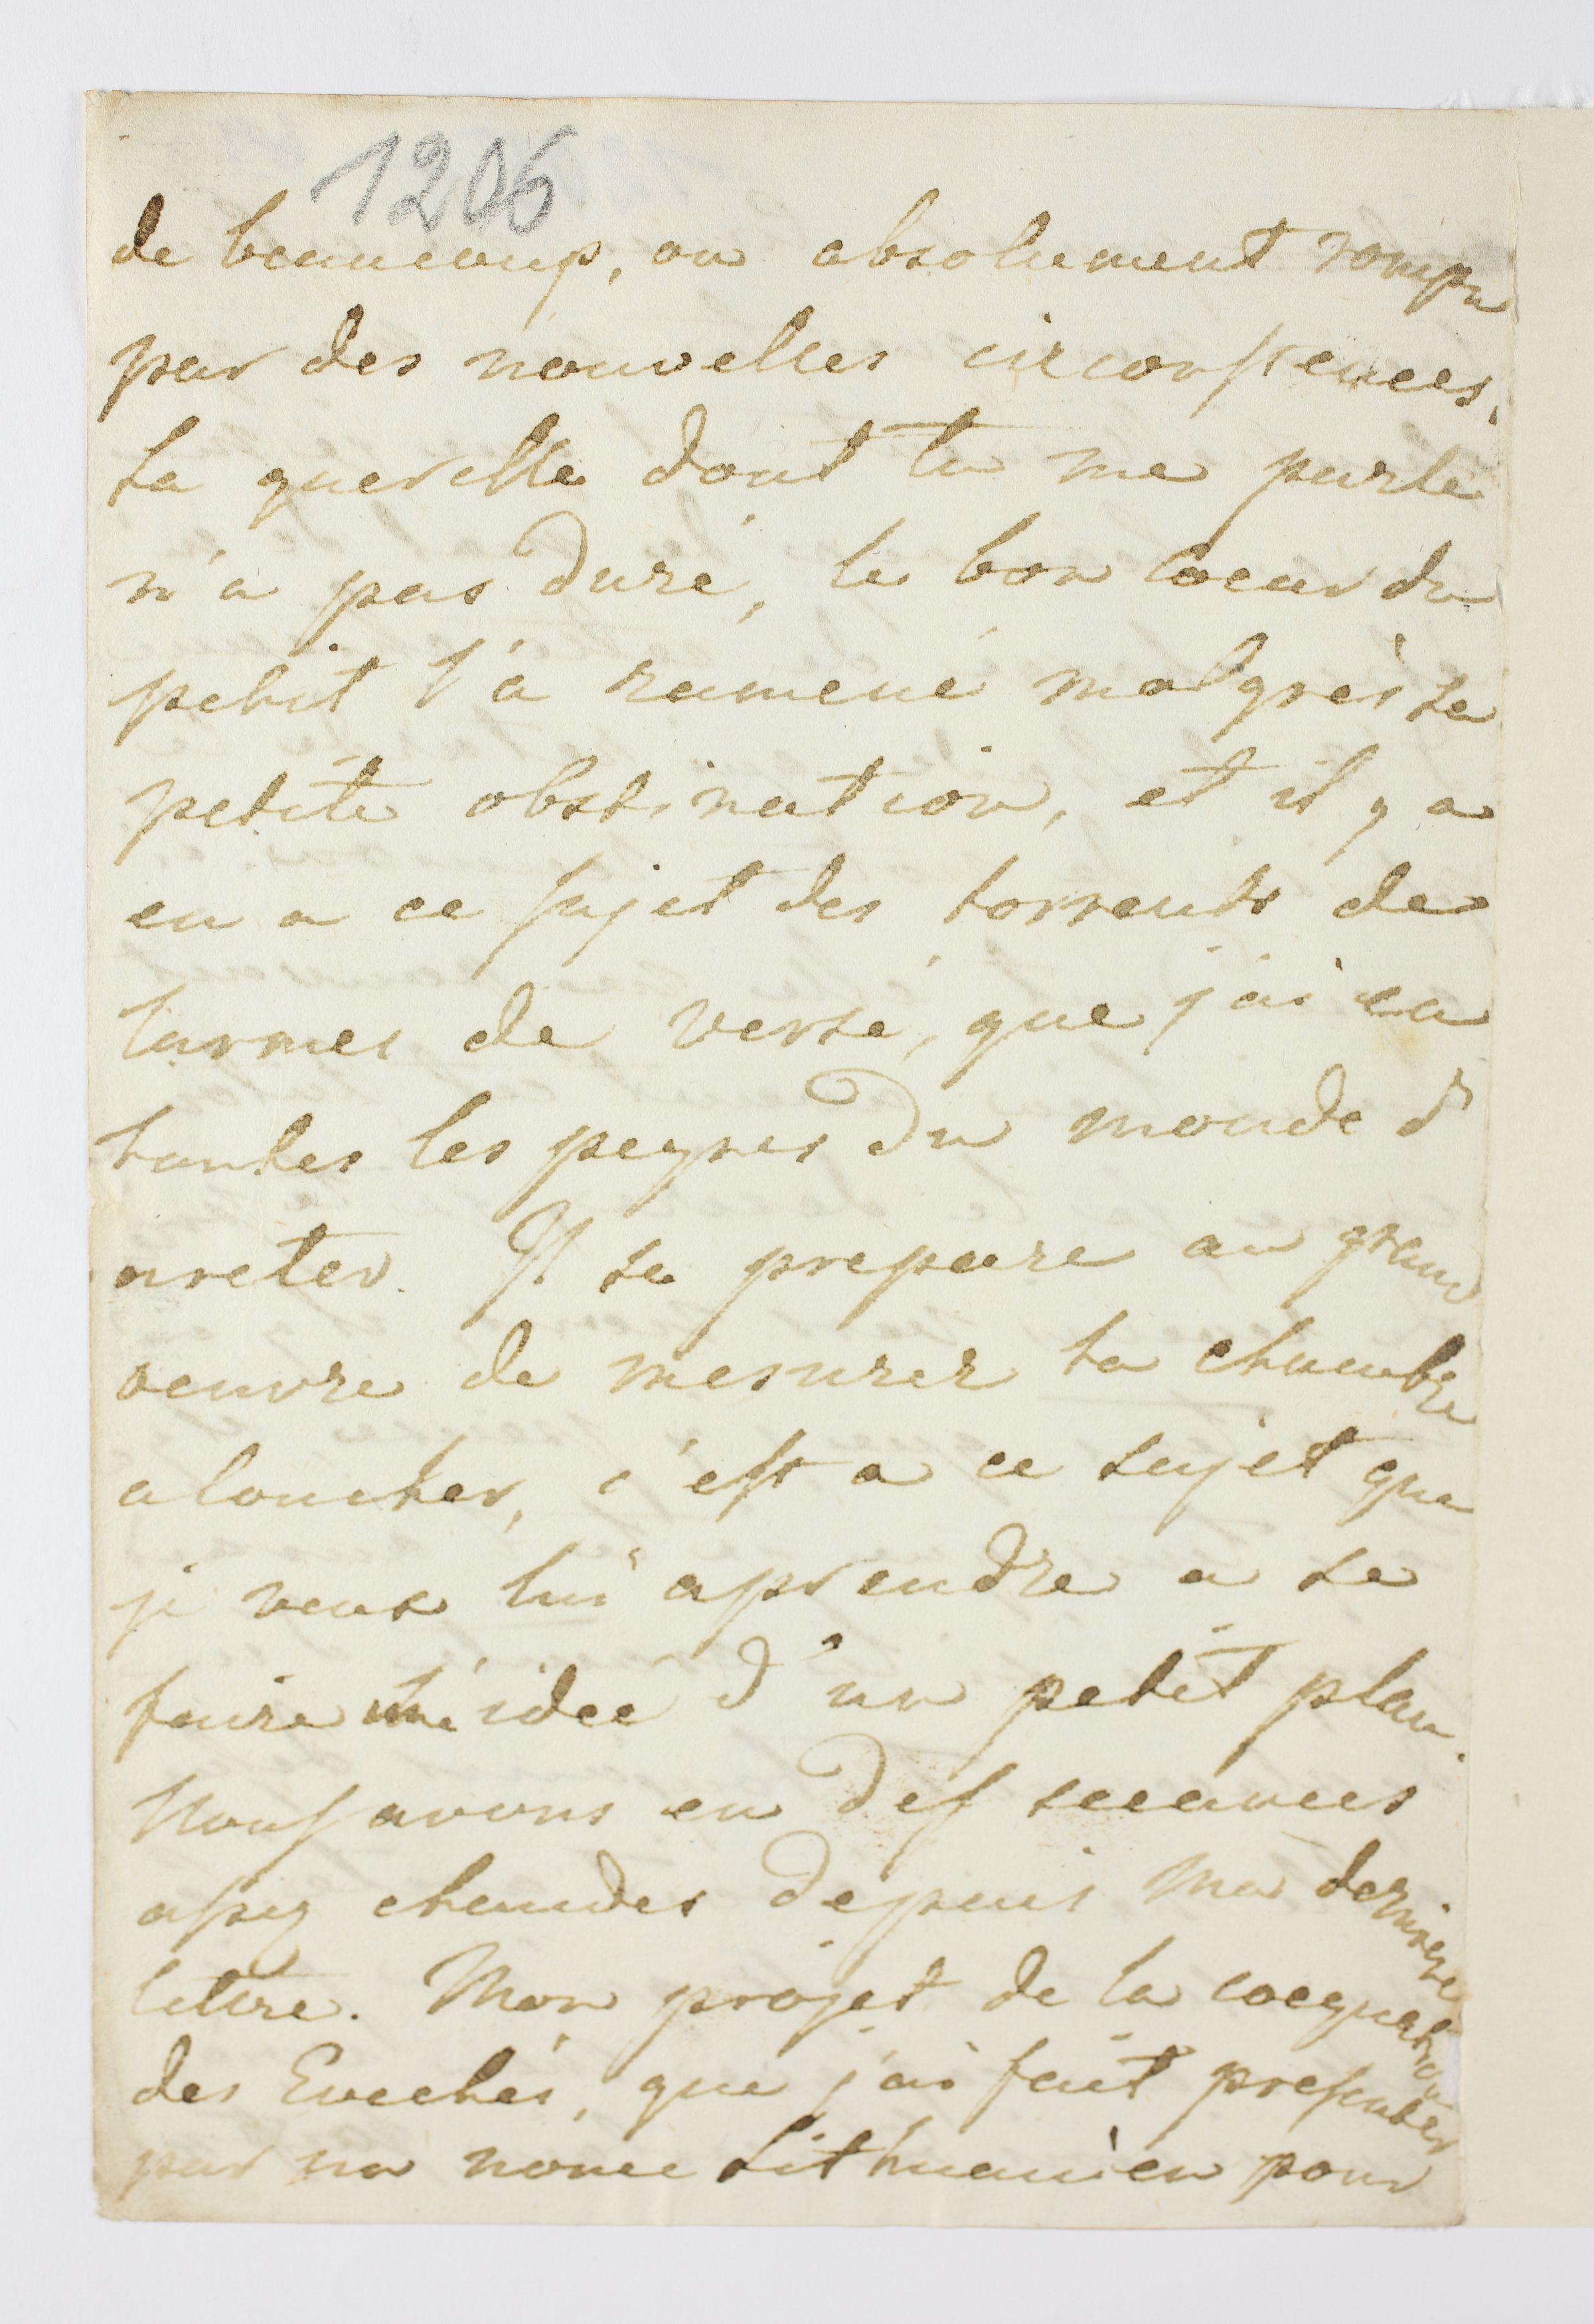 1206
de beaucoup, ou absolument rompu
par des nouvelles circonstences.
La querelle dont tu me parle
n'a pas duré, le bon coeur du
petit l'a ramené malgrès sa
petite obstination, et il y a
eu a ce sujet des torrents de
larmes de versé, que j'ai eu
toutes les peynes du monde d'
areter. Il se prepare au grand
oeuvre de mesurer ta chambre
a coucher, c'est a ce sujet que
je veux lui aprendre a se
faire idée d'un petit plan.
Nous avons eu des sceances
assez chaudes depuis ma derniere
lettre. Mon projet de la coequation
des Evechés, que j'ai fait presenter
par un nonce Lithuanien pour